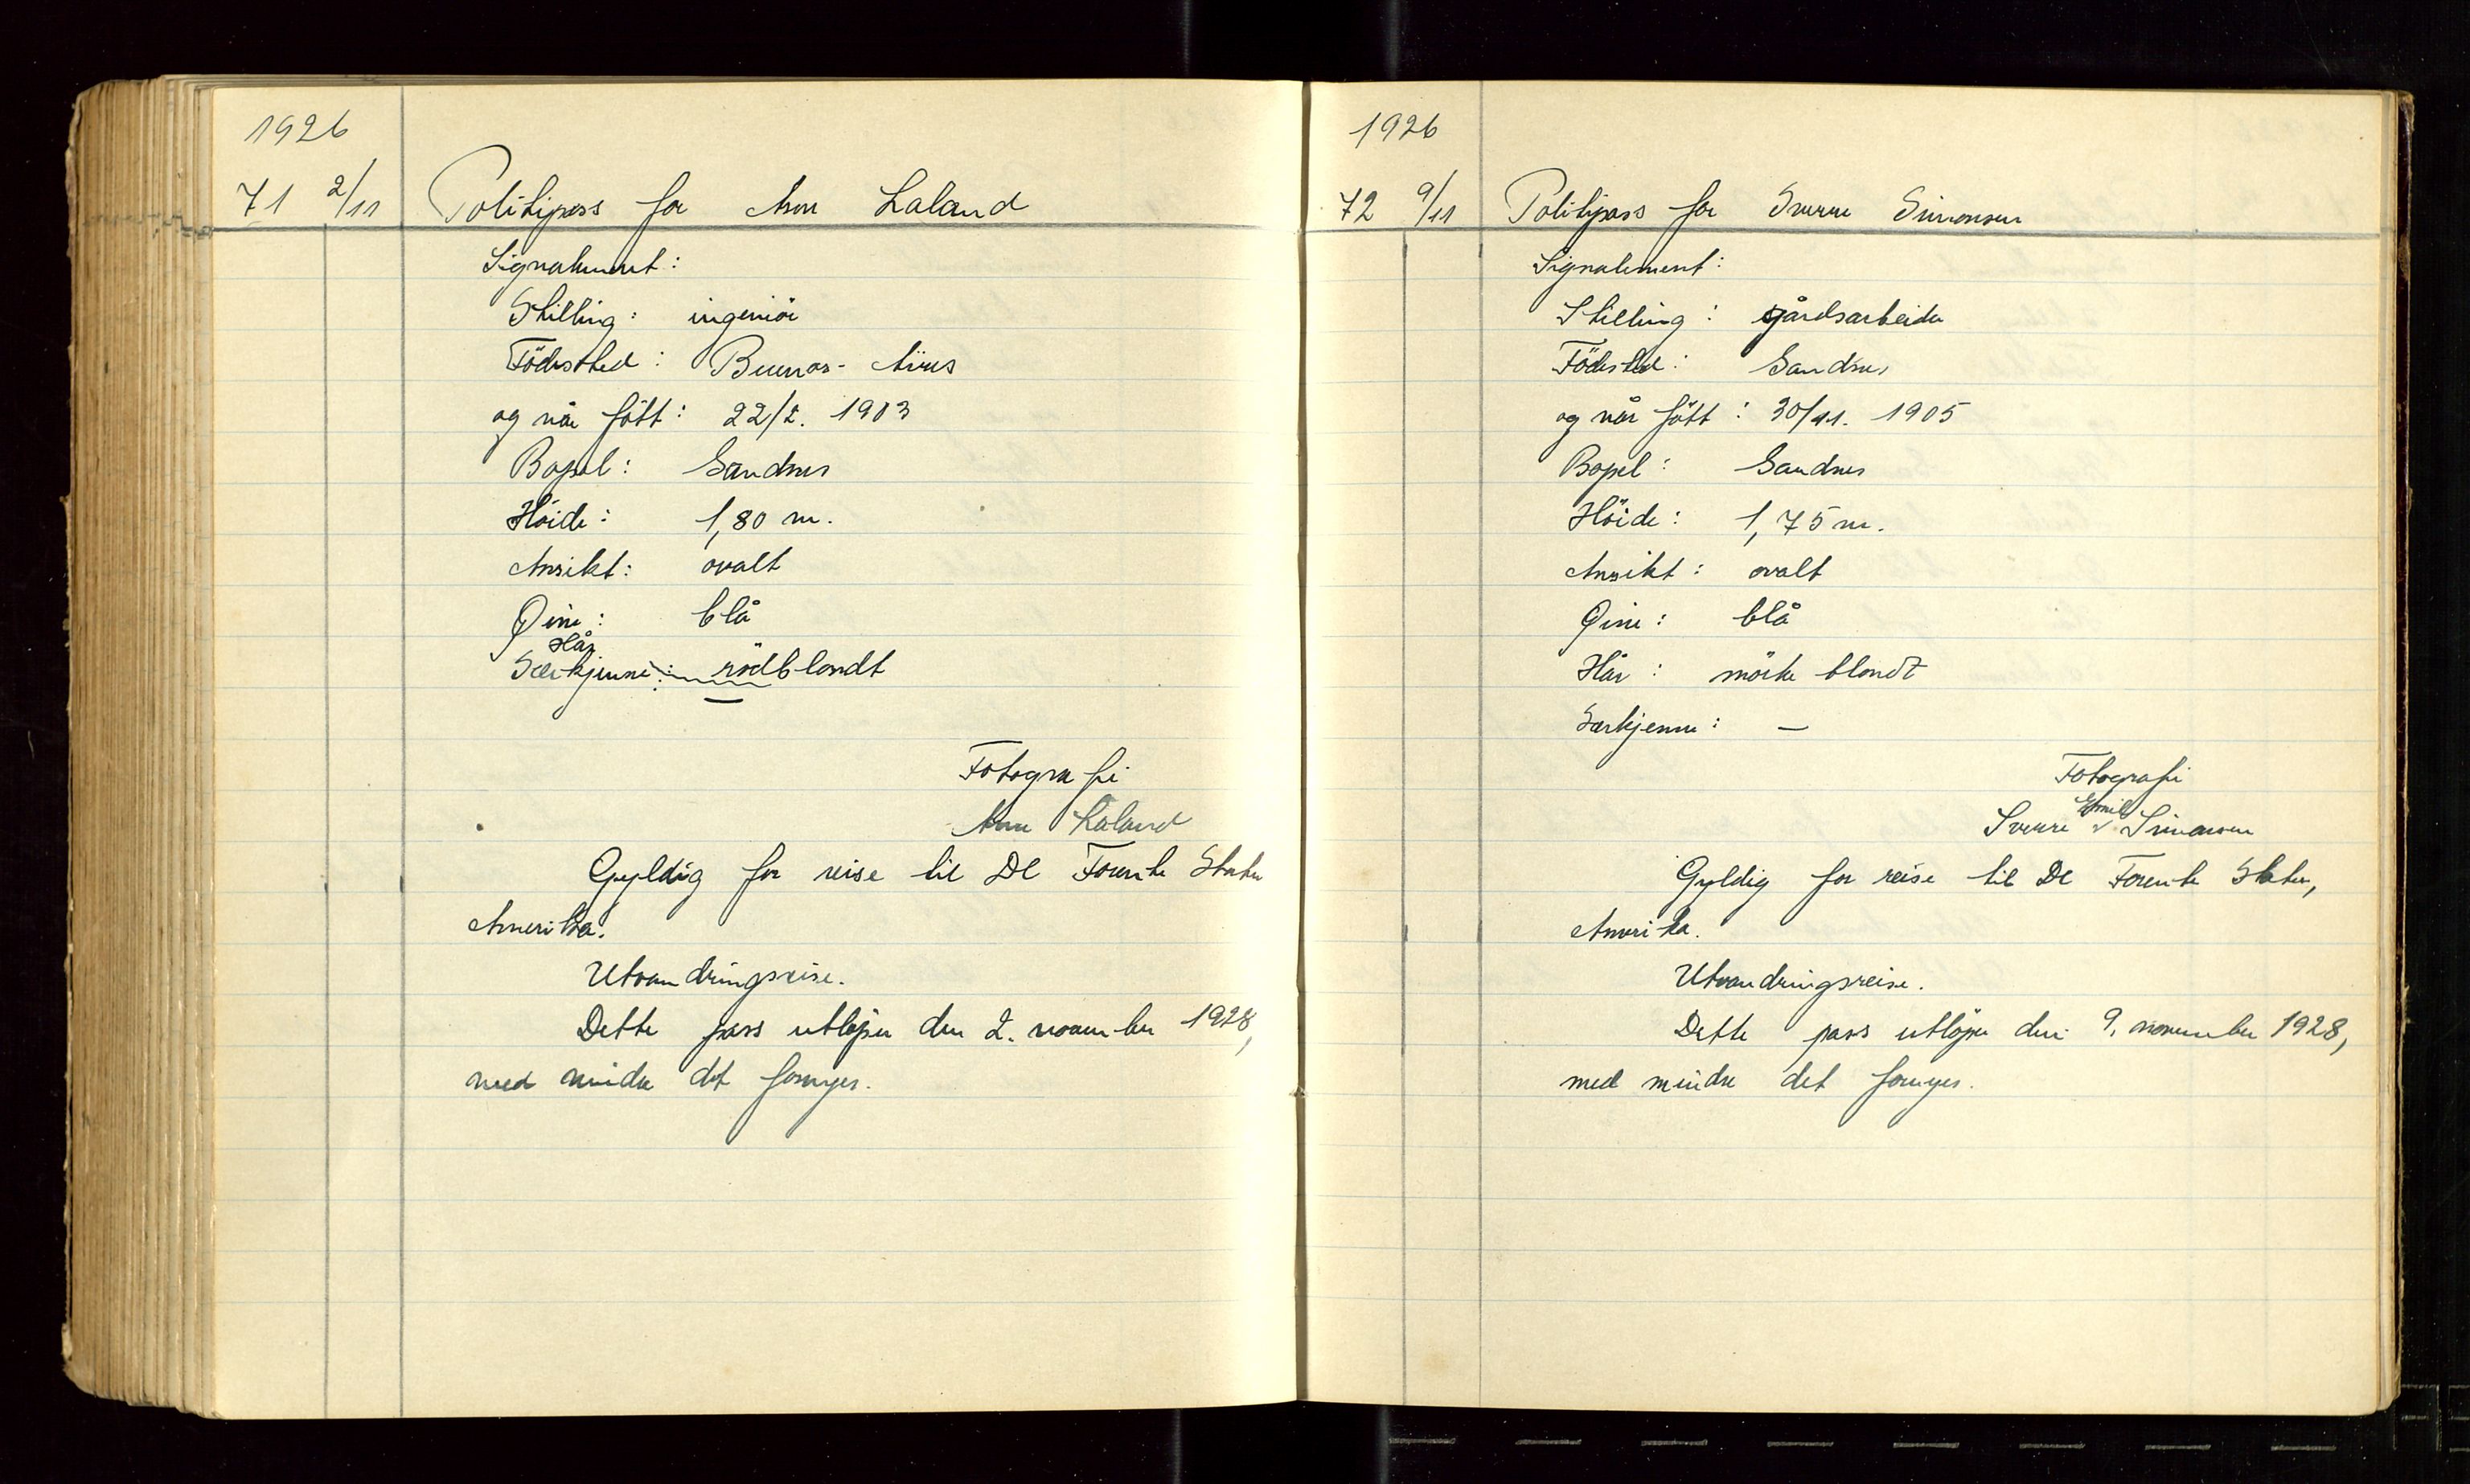 1926
71 2/11 Politipass for Arne Laland
Signalement:
Stilling: ingeniör
Födested: Buenos-Aires
og når fött: 22/2. 1903
Bopel: Sandnes
Höide: 1,80 m.
Ansikt: ovalt
Øine: blå
Hår
Særkjenne: rödblondt
—
Fotografi
Arne Laland
Gyldig for reise til De Forente Stater
Amerika.
Utvandringsreise.
Dette pass utløper den 2. november 1928,
med mindre det fornyes.
1926
72 9/11 Politipass for Sverre Simonsen
Signalement:
Stilling: gårdsarbeider
Födested: Sandnes
og når fött: 30/11. 1905
Bopel: Sandnes
Höide: 1,75 m.
Ansikt: ovalt
Øine: blå
Hår: mörke blondt
Særkjenne: —
Fotografi
Emil
Sverre v Simonsen
Gyldig for reise til De Forente Stater,
Amerika.
Utvandringsreise.
Dette pass utlöper den 9. november 1928,
med mindre det fornyes.